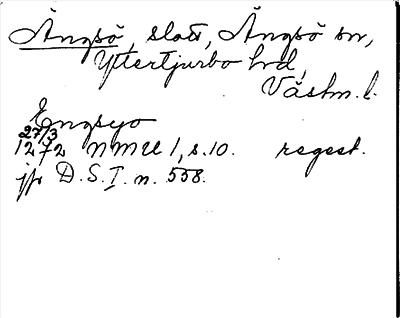 Ängsö, slott, Ängsö sn,
Yttertjurbo hd,
Västm. l.
Engsyo
27/3
1272 NMU 1, s. 10. regest.
jfr D.S. I. n. 558.